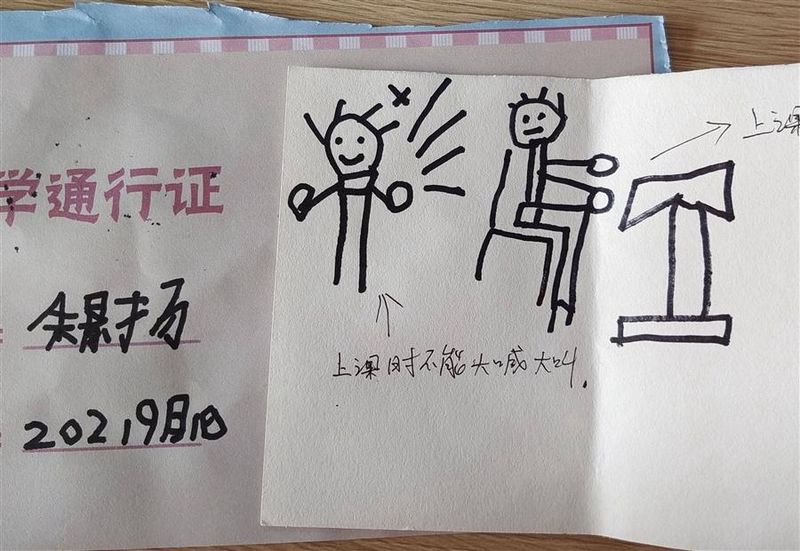 学通行证
朱景扬
2021 9月1日
上课时不能大喊大叫.
上课